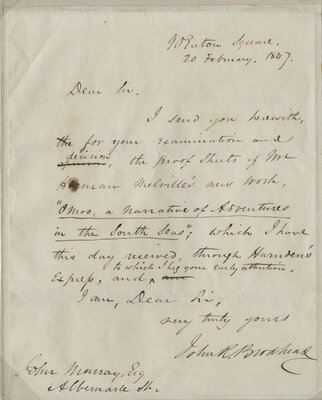 90 Eaton Square,
20 February, 1847.
Dear Sir,
I send you herewith,
the for your examination and
decision
opinion, the proof sheets of Mr
Herman Melville's new work,
"Omoo, a narrative of Adventures
in the South Seas"; which I have
this day received, through Harnden's
to which I beg your early attention.
Express, and
I am, Dear Sir,
very truly yours
John R. Brodhead
John Murray, Esq
Albemarle St.